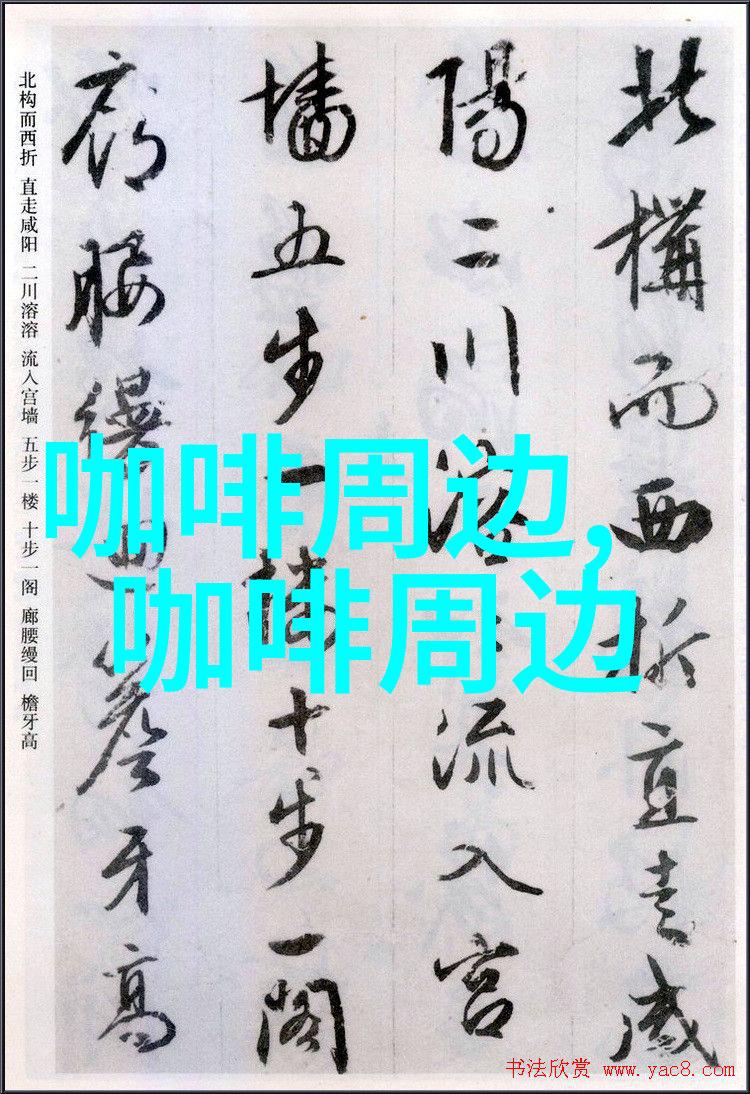 北構而西折直走咸
陽二川溶溶流入宫
墻五步一樓十步一閣
廊腰縵迴簷牙高
北构而西折 直走咸阳 二川溶溶 流入宫墙 五步一楼 十步一阁 廊腰缦回 檐牙高
咖啡周边,
咖啡周边
书法欣赏 www.yac8.com